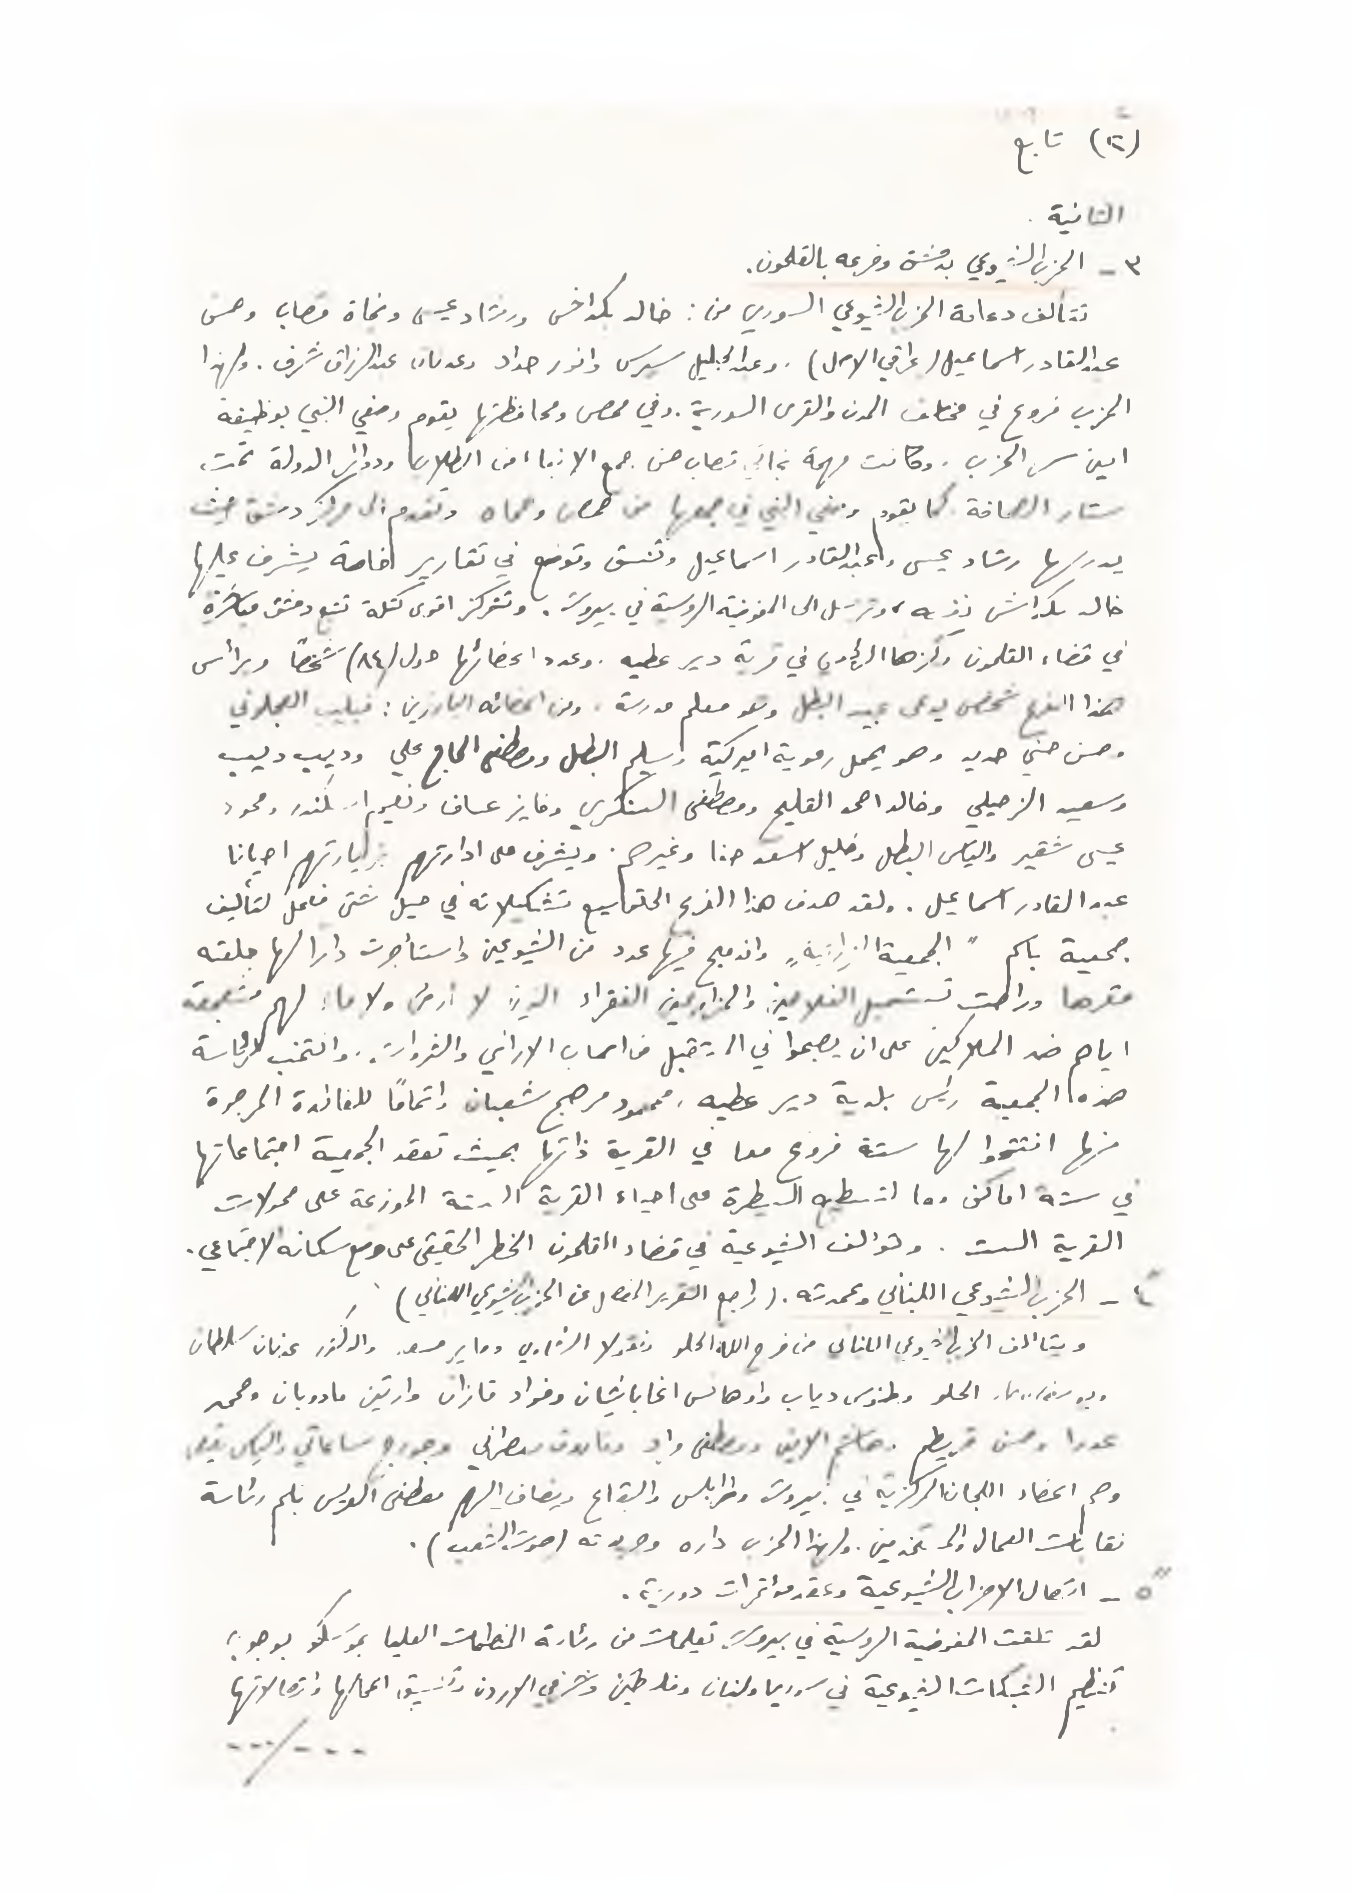 (١٢) تابع
الثانية .
٣ – الحزب الشيوعي بدمشق وفرعه بالقلمون.
تتألف دعامة الحزب الشيوعي السوري من : خالد بكداش ورشاد عيسى ونجاة قصاب حسن
عبد القادر اسماعيل (عراقي الاصل) . وعبد الجليل سيرس وانور حداد وعدنان عبد الرزاق شرف . ولهذا
الحزب فروع في مختلف المدن والقرى السورية . وفي حمص ومحافظتها يقوم وصفي البني بوظيفة
امين سر الحزب . وكانت مهمة نجاة قصاب حسن جمع الانباء من الطلاب ودوائر الدولة تحت
ستار الصحافة كما يقوم وصفي البني في جمعها من حمص وحماه وتقدم الى مركز دمشق حيث
يدرسها رشاد عيسى وعبد القادر اسماعيل وتنسق وتوضع في تقارير خاصة يشرف عليها
خالد بكداش وترسل الى المفوضية الروسية في بيروت . وتتركز اقوى كتلة تتبع دمشق مباشرة
في قضاء القلمون ومركزها الرئيسي في قرية دير عطيه . وعدد اعضائها حول (٨٤) شخصًا ويرأس
هذا الفرع شخص يدعى عبيد البطل وهو معلم مدرسة . ومن اعضائه البارزين : فيليب العجلوني
وحسن حسني حديد وهو يحمل رعوية اميركية وسليم البطل ومصطفى الحاج علي وديب ديب
وسعيد الزحيلي وخالد احمد القليح ومصطفى السنكري وفايز عساف ونعيم اسكندر ومحمود
عيسى شقير والياس البطل وخليل اسعد حنا وغيرهم . ويشرف على ادارتهم بزيارتهم احيانا
عبد القادر اسماعيل . ولقد هدف هذا الفرع الى توسيع تشكيلاته في سبيل شتى فعمل لتأليف
جمعية باسم " الجمعية الزراعية " واندمج فيها عدد من الشيوعيين واستأجرت دارا لها جعلته
مقرها وراحت تستميل الفلاحين والمزارعين الفقراء الذين لا أرض ولا ماء لهم مشجعة
اياهم ضد الملاكين على ان يصبحوا في المستقبل من اصحاب الاراضي والثروات . وانتخب لرئاسة
هذه الجمعية رئيس بلدية دير عطيه . محمود مرهج شعبان واتمامًا للفائدة المرجوة
منها افتتحوا لها ستة فروع معا في القرية ذاتها بحيث تعقد الجمعية اجتماعاتها
في ستة اماكن معا لتستطيع السيطرة على احياء القرية الستة الموزعة على حمولات
القرية الست . وتؤلف الشيوعية في قضاء القلمون الخطر الحقيقي على وضع سكانه الاجتماعي .
٤ – الحزب الشيوعي اللبناني وعمدته . (راجع التقرير المفصل عن الحزب الشيوعي اللبناني)
ويتألف الحزب الشيوعي اللبناني من فرج الله الحلو ونقولا الشاوي وماير مسعد والدكتور عدنان سلطان
الحلو وطنوس دياب واوهانس اغاباشيان وفؤاد قازان وارتين مادويان ومحمد
عدرا وحسن قريطم . هاشم الامين ومصطفى وجورج ساعاتي والياس
وهم اعضاء اللجان المركزية في بيروت وطرابلس والبقاع ويضاف اليهم مصطفى العريس باسم رئاسة
نقابات العمال والمستخدمين . ولهذا الحزب داره وجريدته (صوت الشعب) .
٥ – اتصال الاحزاب الشيوعية وعقد مؤتمرات دورية .
لقد تلقت المفوضية الروسية في بيروت تعليمات من رئاسة المنظمات العليا بموسكو بوجوب
تنظيم الشبكات الشيوعية في سوريا ولبنان وفلسطين وشرقي الاردن وتنسيق اعمالها واتصالاتها
---/---